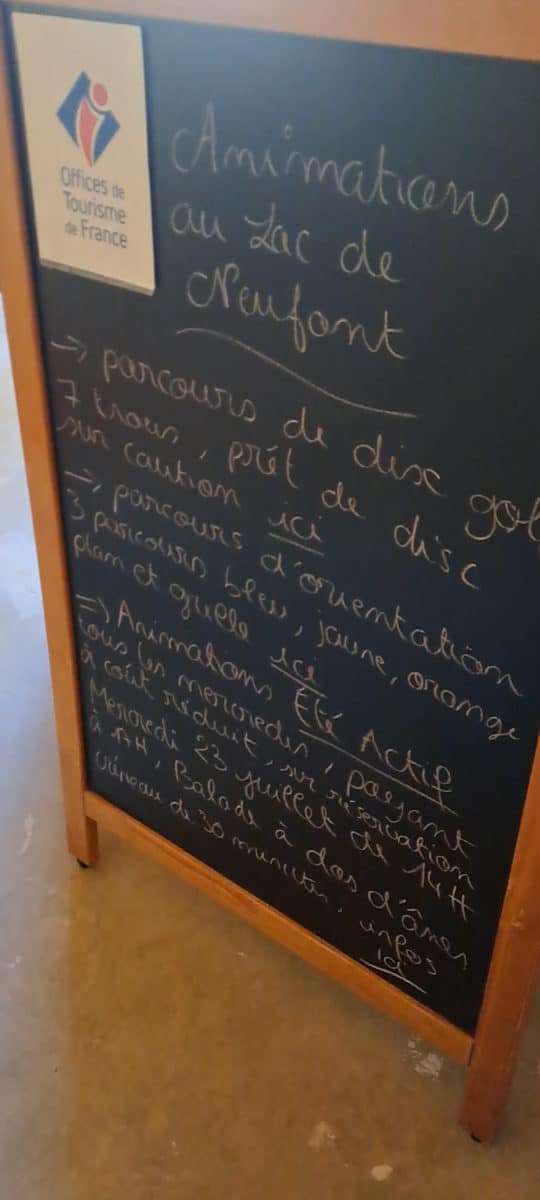 Offices de
Tourisme
de France
Animations
au Lac de
Neufont
→ parcours de disc gol
7 trous, prêt de disc
sur caution ici
→ parcours d'orientation
3 parcours bleu, jaune, orange
plan et guelle ici
=> Animations Été Actif
tous les mercredis, payant
à coût réduit, sur réservation
Mercredi 23 juillet de 14H
à 17H, Balade à dos d'ânes
créneau de 30 minutes, infos
ici